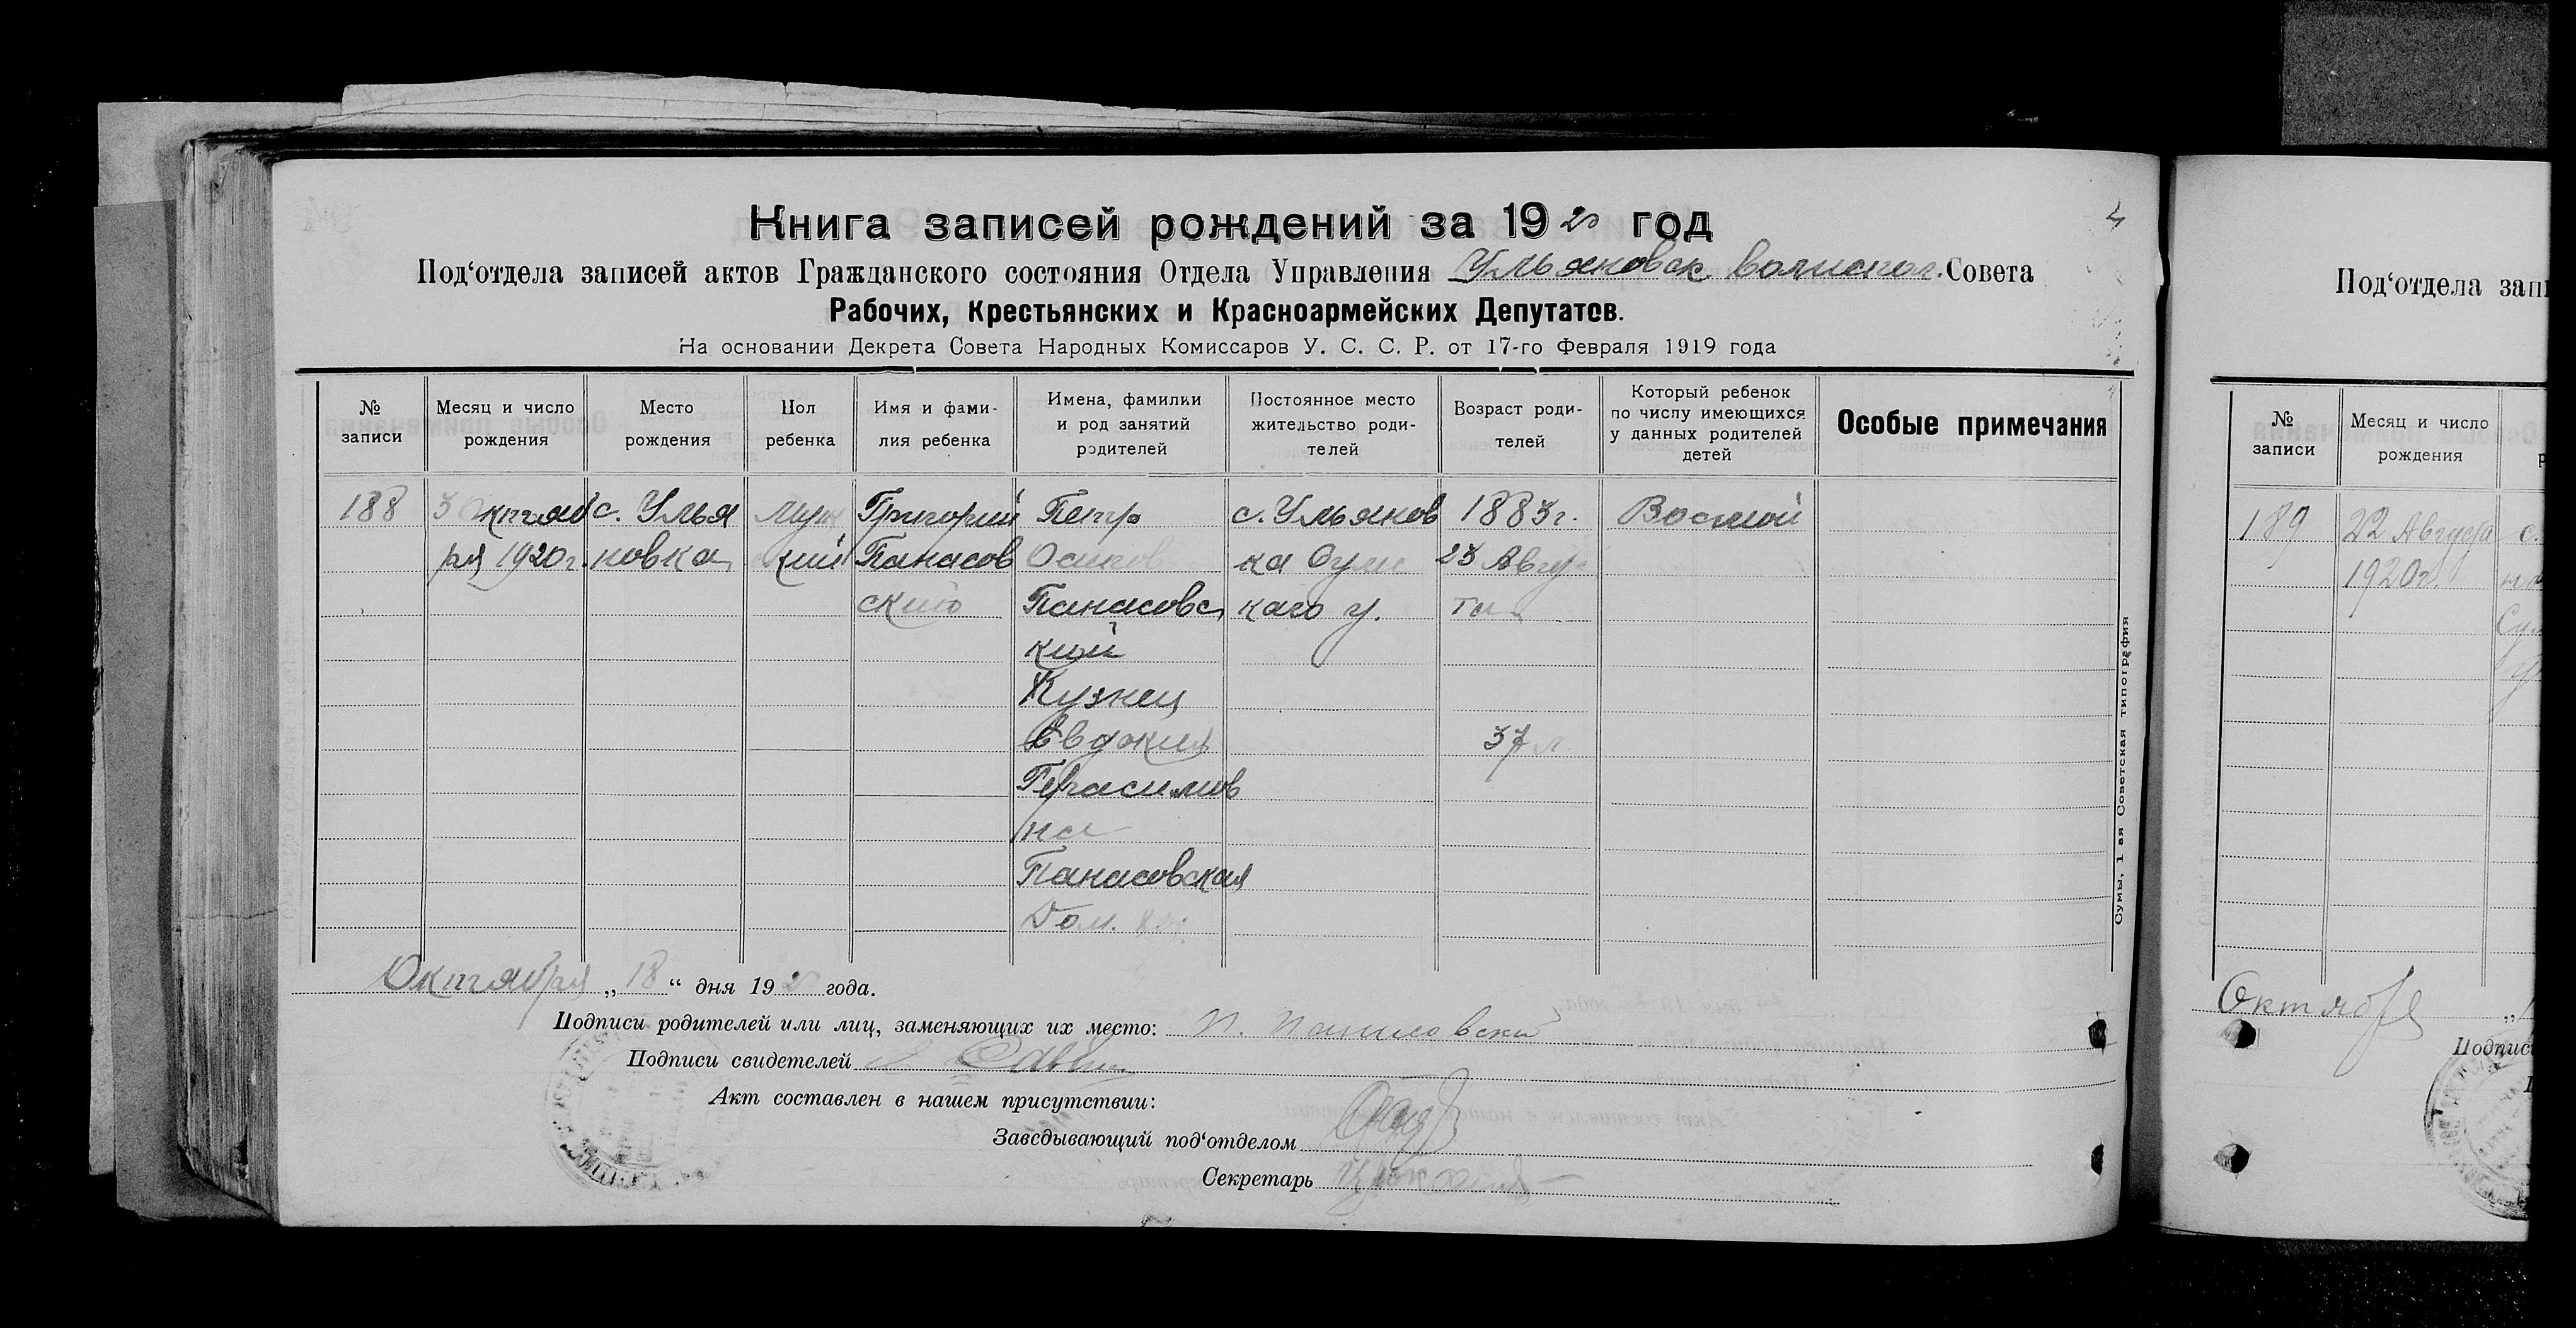 Книга записей рождений за 1920 год
4
Под‘отдела записей актов Гражданского состояния Отдела Управления Ульяновск. волиспол. Совета
Рабочих, Крестьянских и Красноармейских Депутатов.
На основании Декрета Совета Народных Комиссаров У. С. С. Р. от 17-го Февраля 1919 года
№ записи
Месяц и число рождения
Место рождения
Пол ребенка
Имя и фами-
лия ребенка
Имена, фамилии
и род занятий
родителей
Постоянное место
жительство роди-
телей
Возраст роди-
телей
Который ребенок
по числу имеющихся
у данных родителей
детей
Особые примечания
188
3 Октяб
ря 1920г.
с. Улья
новка
Муж
кий
Григорий
Панасов
ский
Петр
Осипов
Панасовс
кий
Кузнец
Евдокия
Герасимов
на
Панасовская
Дом.
с. Ульянов
ка Сум
каго у.
1883г.
23 Авгус
та
37 л.
Восмой
Октября „18“ дня 1920 года.
Подписи родителей или лиц, заменяющих их место: П. Панасовский
Подписи свидетелей
Акт составлен в нашем присутствии:
Заведывающий под‘отделом
Секретарь
Сумы, 1 ая Советская типография
Под‘отдела зап
№ записи
Месяц и число
рождения
189
22 Августа
1920г.
с.
Октября
Подпис